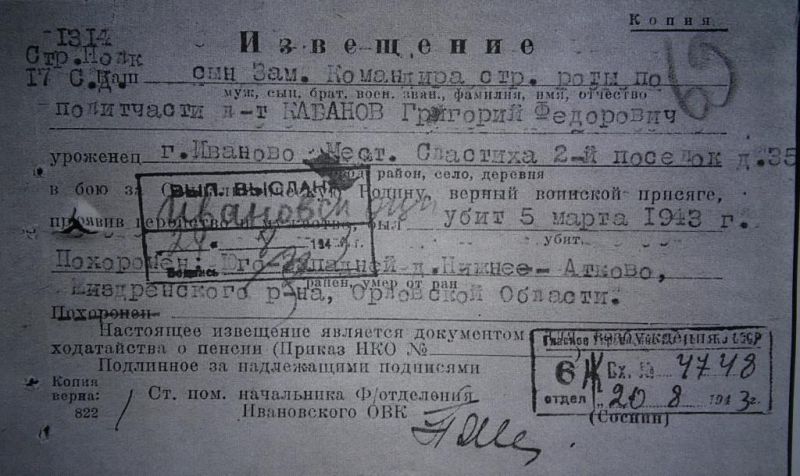 Копия
1314
Извещение
Стр.Полк
17 С.Д.
Ваш сын Зам. Командира стр. роты по
муж, сын, брат, воен. зван., фамилия, имя, отчество
политчасти л-т КАБАНОВ Григорий Федорович
уроженец г.Иваново Мест. Сластиха 2-й поселок д.35
район, село, деревня
в бою за Родину, верный воинской присяге,
ВЫП. ВЫСЛАНА
проявив был убит 5 марта 1943 г.
убит,
Похоронен: Юго-Западней д.Нижнее-Атково,
ранен, умер от ран
Жиздренского р-на, Орловской Области.
Похоронен
Настоящее извещение является документом для возбуждения
ходатайства о пенсии (Приказ НКО №
Подлинное за надлежащими подписями
6 Вх. № 4748
отдел „20 8 1943г.
Копия
верна:
822
Ст. пом. начальника Ф/отделения
Ивановского ОВК
(Соснин)